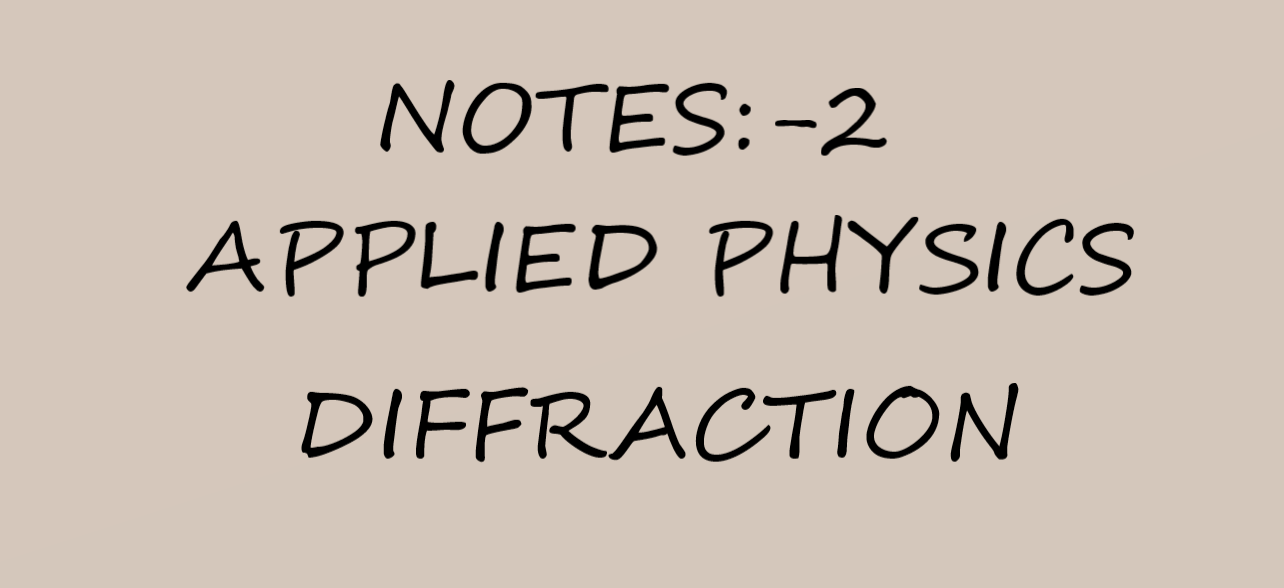 NOTES:-2
APPLIED PHYSICS
DIFFRACTION